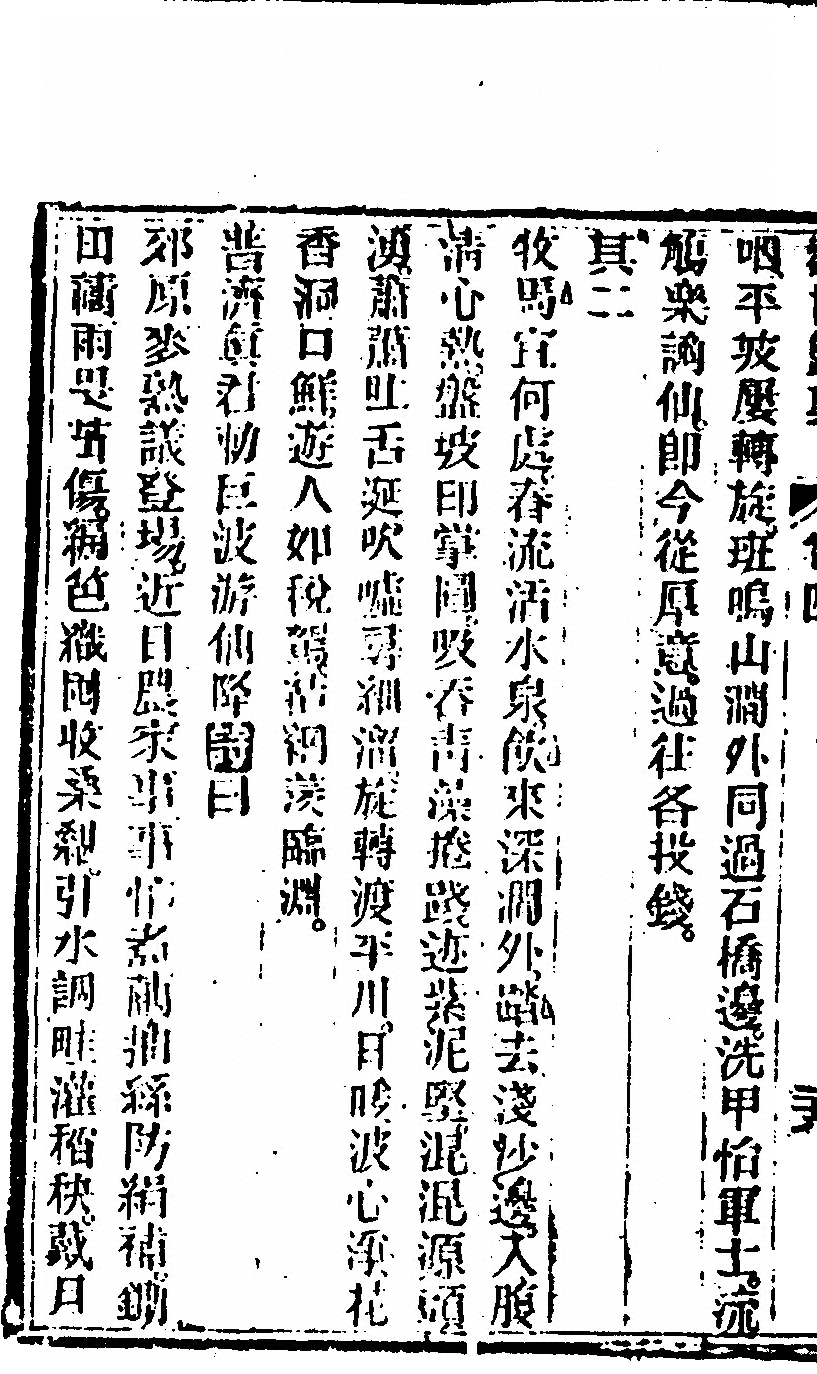 咽平坡屢轉旋。班鳴山澗外。同過石橋邊。洗甲怡軍士。流
觴樂謫仙。即今從厚意。過往各投錢。
其二
牧馬宜何處。春流活水泉。飲來深澗外。踏去淺沙邊。入腹
清心熱。盤坡印掌圓。吸吞青藻捲。踐迹紫泥堅。混混源頭
湧。蕭蕭吐舌涎。吹噓尋細溜。旋轉渡平川。日映波心漾。花
香洞口鮮。遊人如稅駕。臨淵。
普濟真君勅巨波游仙降詩曰
郊原麥熟議登場。近日農家事事忙。抽絲防絹補。鋤
田雨畏苗傷。編笆織收粟。引水調畦灌稻秧。戴日